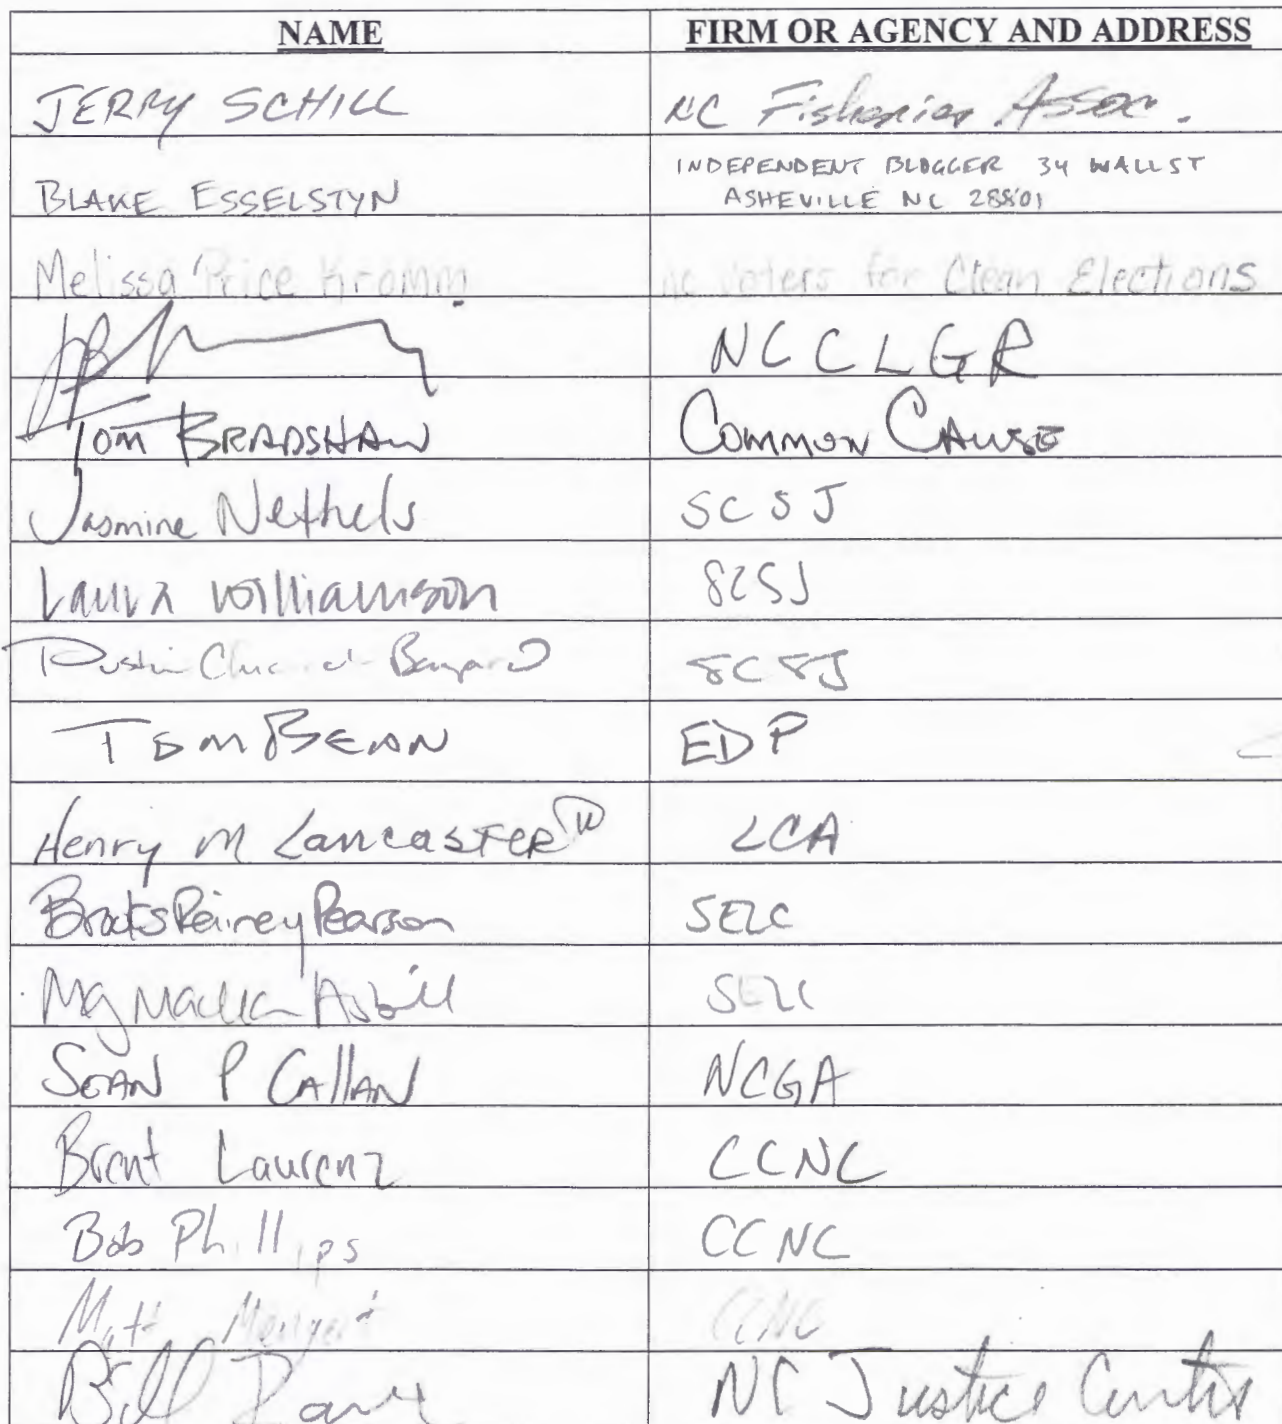 NAME FIRM OR AGENCY AND ADDRESS
JERRY SCHILL NC Fisheries Assoc.
BLAKE ESSELSTYN INDEPENDENT BLOGGER 34 WALL ST
ASHEVILLE NC 28801
Melissa Price Kromm NC Voters for Clean Elections
NCCLGR
TOM BRADSHAW COMMON CAUSE
Jasmine Nethels SCSJ
Laura Williamson SCSJ
Dustin SCSJ
TOM BEAN EDP
Henry M Lancaster II LCA
Brooks Rainey Pearson SELC
SELC
SEAN P CALLAN NCGA
Brent Laurenz CCNC
Bob Phillips CCNC
Matt CCNC
Bill NC Justice Center